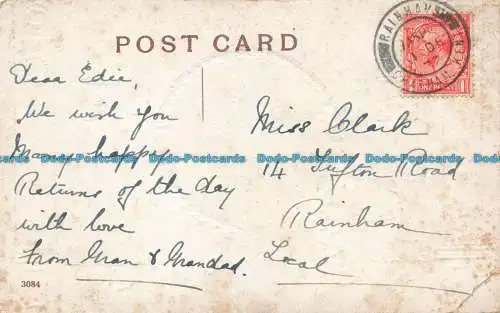 POST CARD
RAINHAM
Dear Edie,
We wish you
Many happy
Returns of the day
with love
From Gran & Grandad.
3084
Miss Clark
14 Tufton Road
Rainham
Local
Dodo-Postcards Dodo-Postcards Dodo-Postcards Dodo-Postcards Dodo-Postcards